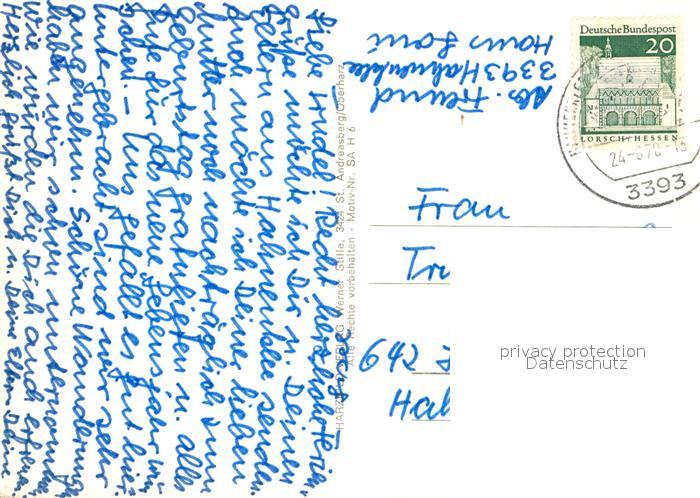 Liebe Trudel! Recht herzliche Ferien-
grüße möchte ich Dir u. Deinen
Eltern aus Hahnenklee senden.
Auch möchte ich Deiner lieben
Mutter noch nachträglich zum
Geburtstag gratulieren u. alles
Gute für das neue Lebensjahr wün-
schen. - Uns gefällt es gut hier.
Untergebracht sind wir sehr
angenehm. Schöne Wanderungen
haben wir schon unternommen.
Wie würden die Dich auch erfreuen.
Herzlich grüßt Dich u. Deine Eltern Deine
HARZ VERLAG Werner Stille, 3424 St. Andreasberg/Oberharz
Alle Rechte vorbehalten - Motiv-Nr. SA H 6
Abs. Freund
3393 Hahnenklee
Haus
Deutsche Bundespost
20
LORSCH/HESSEN
24-6.70-15
3393
Frau
Tru
642
Hal
privacy protection
Datenschutz